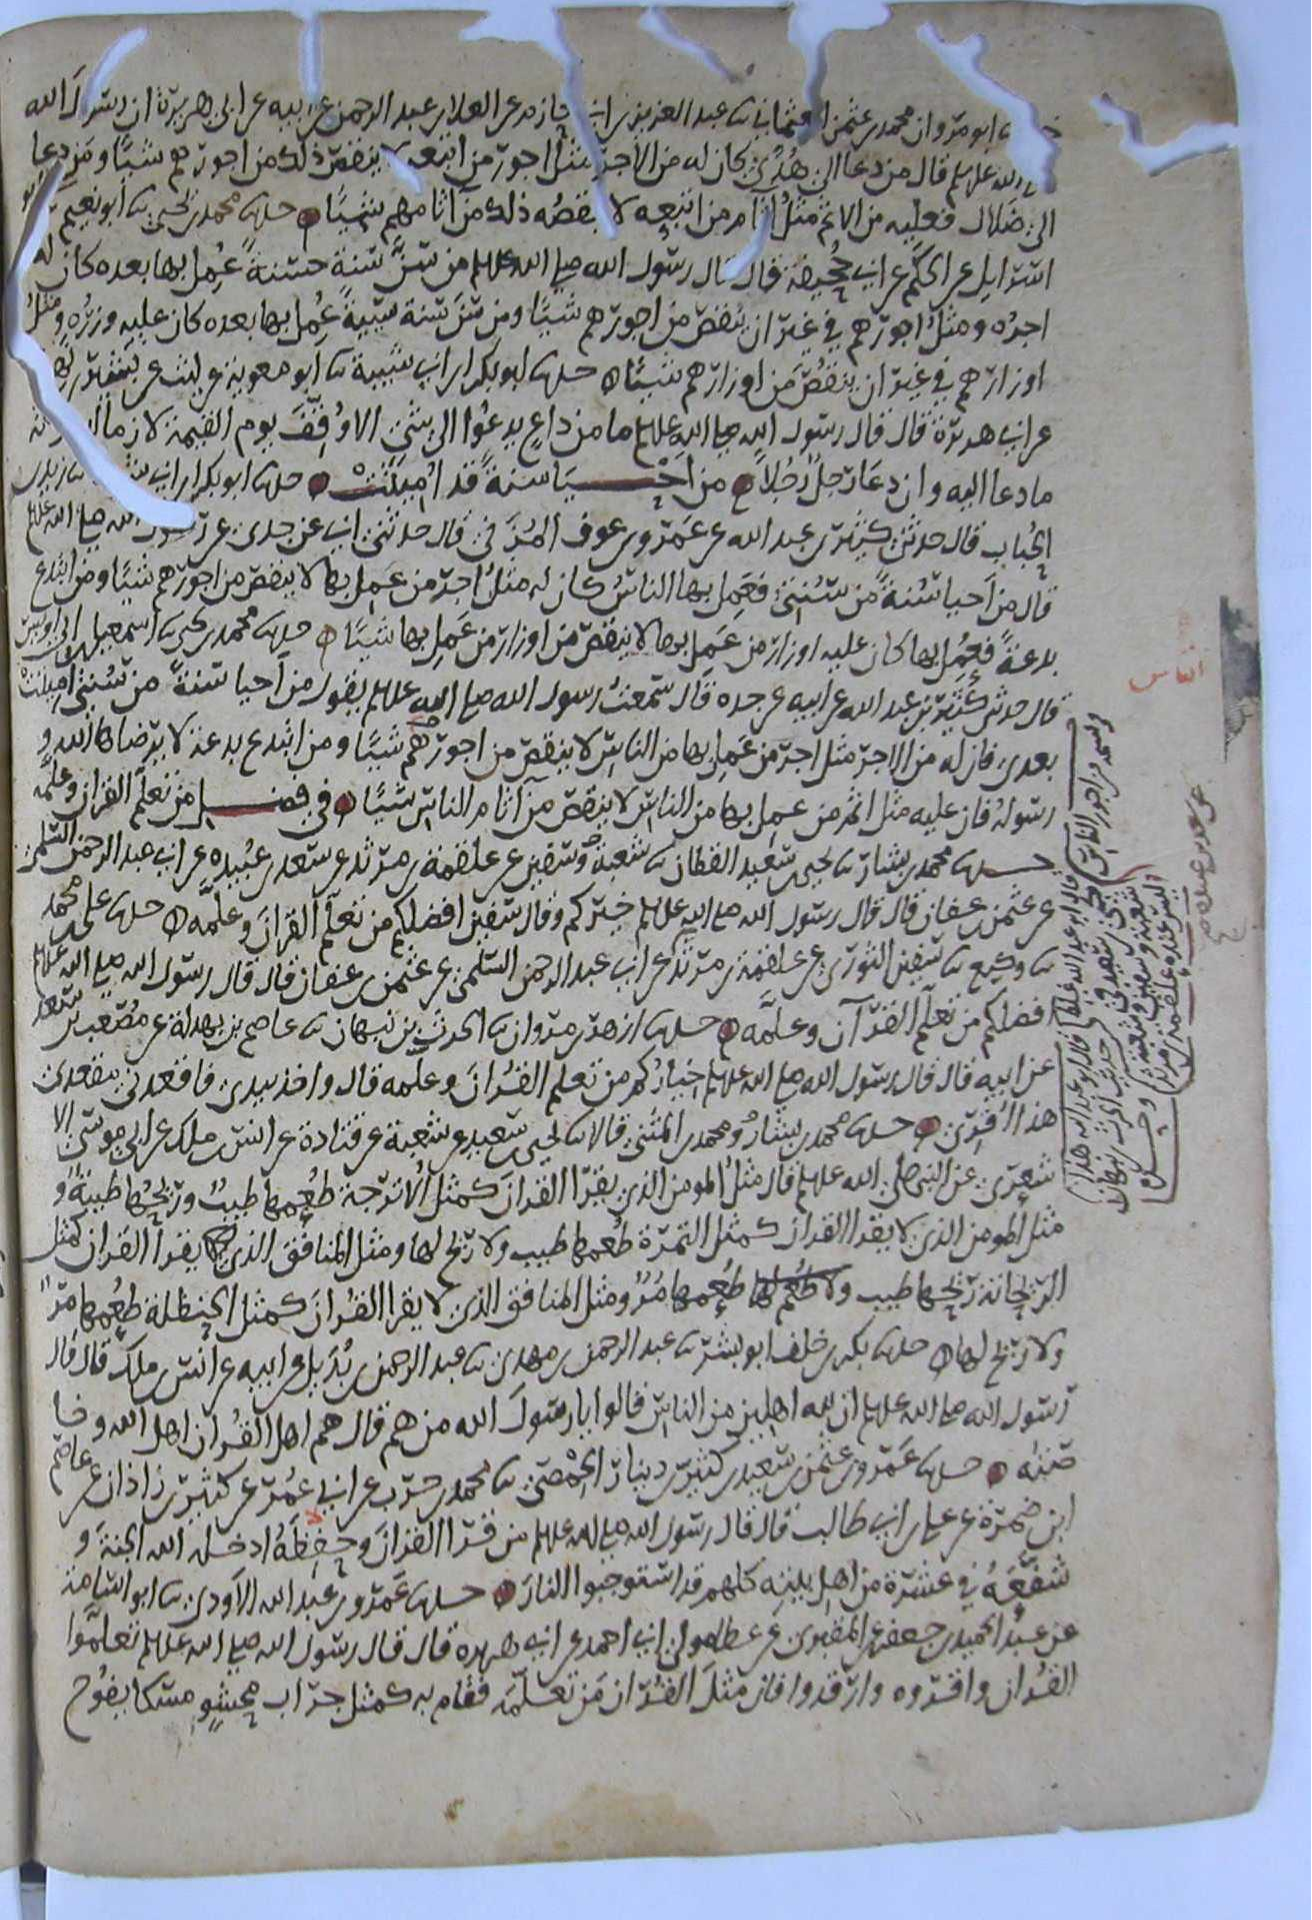 ابو مروان محمد بن عثمن العثماني ثنا عبد العزيز بن ابي حازم عن العلا بن عبد الرحمن عن ابيه عن ابي هريرة ان رسول الله
الله عليه وسلم قال من دعا الى هدى كان له من الاجر مثل اجور من اتبعه لا ينقص ذلك من اجورهم شيا ومن دعا
الى ضلال فعليه من الاثم مثل اثام من اتبعه لا ينقصه ذلك من اثامهم شيا حدثنا محمد بن يحيى ثنا ابو نعيم ثنا
اسرايل عن الحكم عن ابي جحيفة قال قال رسول الله صلى الله عليه وسلم من سن سنة حسنة عمل بها بعده كان له
اجره ومثل اجورهم في غير ان ينقص من اجورهم شيا ومن سن سنة سيية عمل بها بعده كان عليه وزره ومثل
اوزارهم في غير ان ينقص من اوزارهم شيا حدثنا ابو بكر بن ابي شيبة ثنا ابو معوية عن ليث عن بشير بن نهيك
عن ابي هريرة قال قال رسول الله صلى الله عليه وسلم ما من داع يدعوا الى شي الا وقف يوم القيمة لازما
ما دعا اليه وان دعا رجل رجلا من احيا سنة قد اميتت حدثنا ابو بكر بن ابي ثنا زيد بن
الحباب قال حدثني كثير بن عبد الله بن عمرو بن عوف المزني قال حدثني ابي عن جدي عن رسول الله صلى الله عليه وسلم
قال من احيا سنة من سنتي فعمل بها الناس كان له مثل اجر من عمل بها لا ينقص من اجورهم شيا ومن ابتدع
بدعة فعمل بها كان عليه اوزار من عمل بها لا ينقص من اوزار من عمل بها شيا حدثنا محمد بن يحيى ثنا اسمعيل بن ابي اويس
قال حدثني كثير بن عبد الله عن ابيه عن جده قال سمعت رسول الله صلى الله عليه وسلم يقول من احيا سنة من سنتي اميتت
بعدي فان له من الاجر مثل اجر من عمل بها من الناس لا ينقص من اجورهم شيا ومن ابتدع بدعة لا يرضاها الله و
رسوله فان عليه مثل اثم من عمل بها من الناس لا ينقص من اثام الناس شيا في فضل من تعلم القران وعلمه
حدثنا محمد بن بشار ثنا يحيى بن سعيد القطان ثنا شعبة وسفين عن علقمة بن مرثد عن سعد بن عبيدة عن ابي عبد الرحمن السلمي
عن عثمن بن عفان قال قال رسول الله صلى الله عليه وسلم خيركم وقال سفين افضلكم من تعلم القران وعلمه حدثنا علي بن محمد
ثنا وكيع ثنا سفين الثوري عن علقمة بن مرثد عن ابي عبد الرحمن السلمي عن عثمن بن عفان قال قال رسول الله صلى الله عليه وسلم
افضلكم من تعلم القرآن وعلمه حدثنا ازهر بن مروان ثنا الحرث بن نبهان ثنا عاصم بن بهدلة عن مصعب بن سعد
عن ابيه قال قال رسول الله صلى الله عليه وسلم خياركم من تعلم القران وعلمه قال واخذ بيدي فاقعدني مقعدي
هذا اقرئ حدثنا محمد بن بشار ومحمد بن المثنى قالا ثنا يحيى بن سعيد عن شعبة عن قتادة عن انس بن ملك عن ابي موسى الا
شعري عن النبي صلى الله عليه وسلم قال مثل المومن الذي يقرا القران كمثل الاترجة طعمها طيب وريحها طيبة و
مثل المومن الذي لا يقرا القران كمثل التمرة طعمها طيب ولا ريح لها ومثل المنافق الذي يقرا القران كمثل
الريحانة ريحها طيب ولا طعم لها طعمها مر ومثل المنافق الذي لا يقرا القران كمثل الحنظلة طعمها مر
ولا ريح لها حدثنا بكر بن خلف ابو بشر ثنا عبد الرحمن بن مهدي ثنا عبد الرحمن بن بديل عن ابيه عن انس بن ملك قال قال
رسول الله صلى الله عليه وسلم ان لله اهلين من الناس قالوا يا رسول الله من هم قال هم اهل القران اهل الله وخا
صته حدثنا عمرو بن عثمن بن سعيد بن كثير بن دينار الحمصي ثنا محمد بن حرب عن ابي عمر عن كثير بن زاذان عن عاصم
ابن ضمرة عن علي بن ابي طالب قال قال رسول الله صلى الله عليه وسلم من قرا القران وحفظه ادخله الله الجنة و
شفعه في عشرة من اهل بيته كلهم قد استوجبوا النار حدثنا عمرو بن عبد الله الاودي ثنا ابو اسامة
عن عبد الحميد بن جعفر عن المقبري عن عطا مولى ابي احمد عن ابي هريرة قال قال رسول الله صلى الله عليه وسلم تعلموا
القران واقروه وارقدوا فان مثل القران من تعلمه فقام به كمثل جراب محشو مسكا يفوح
الناس